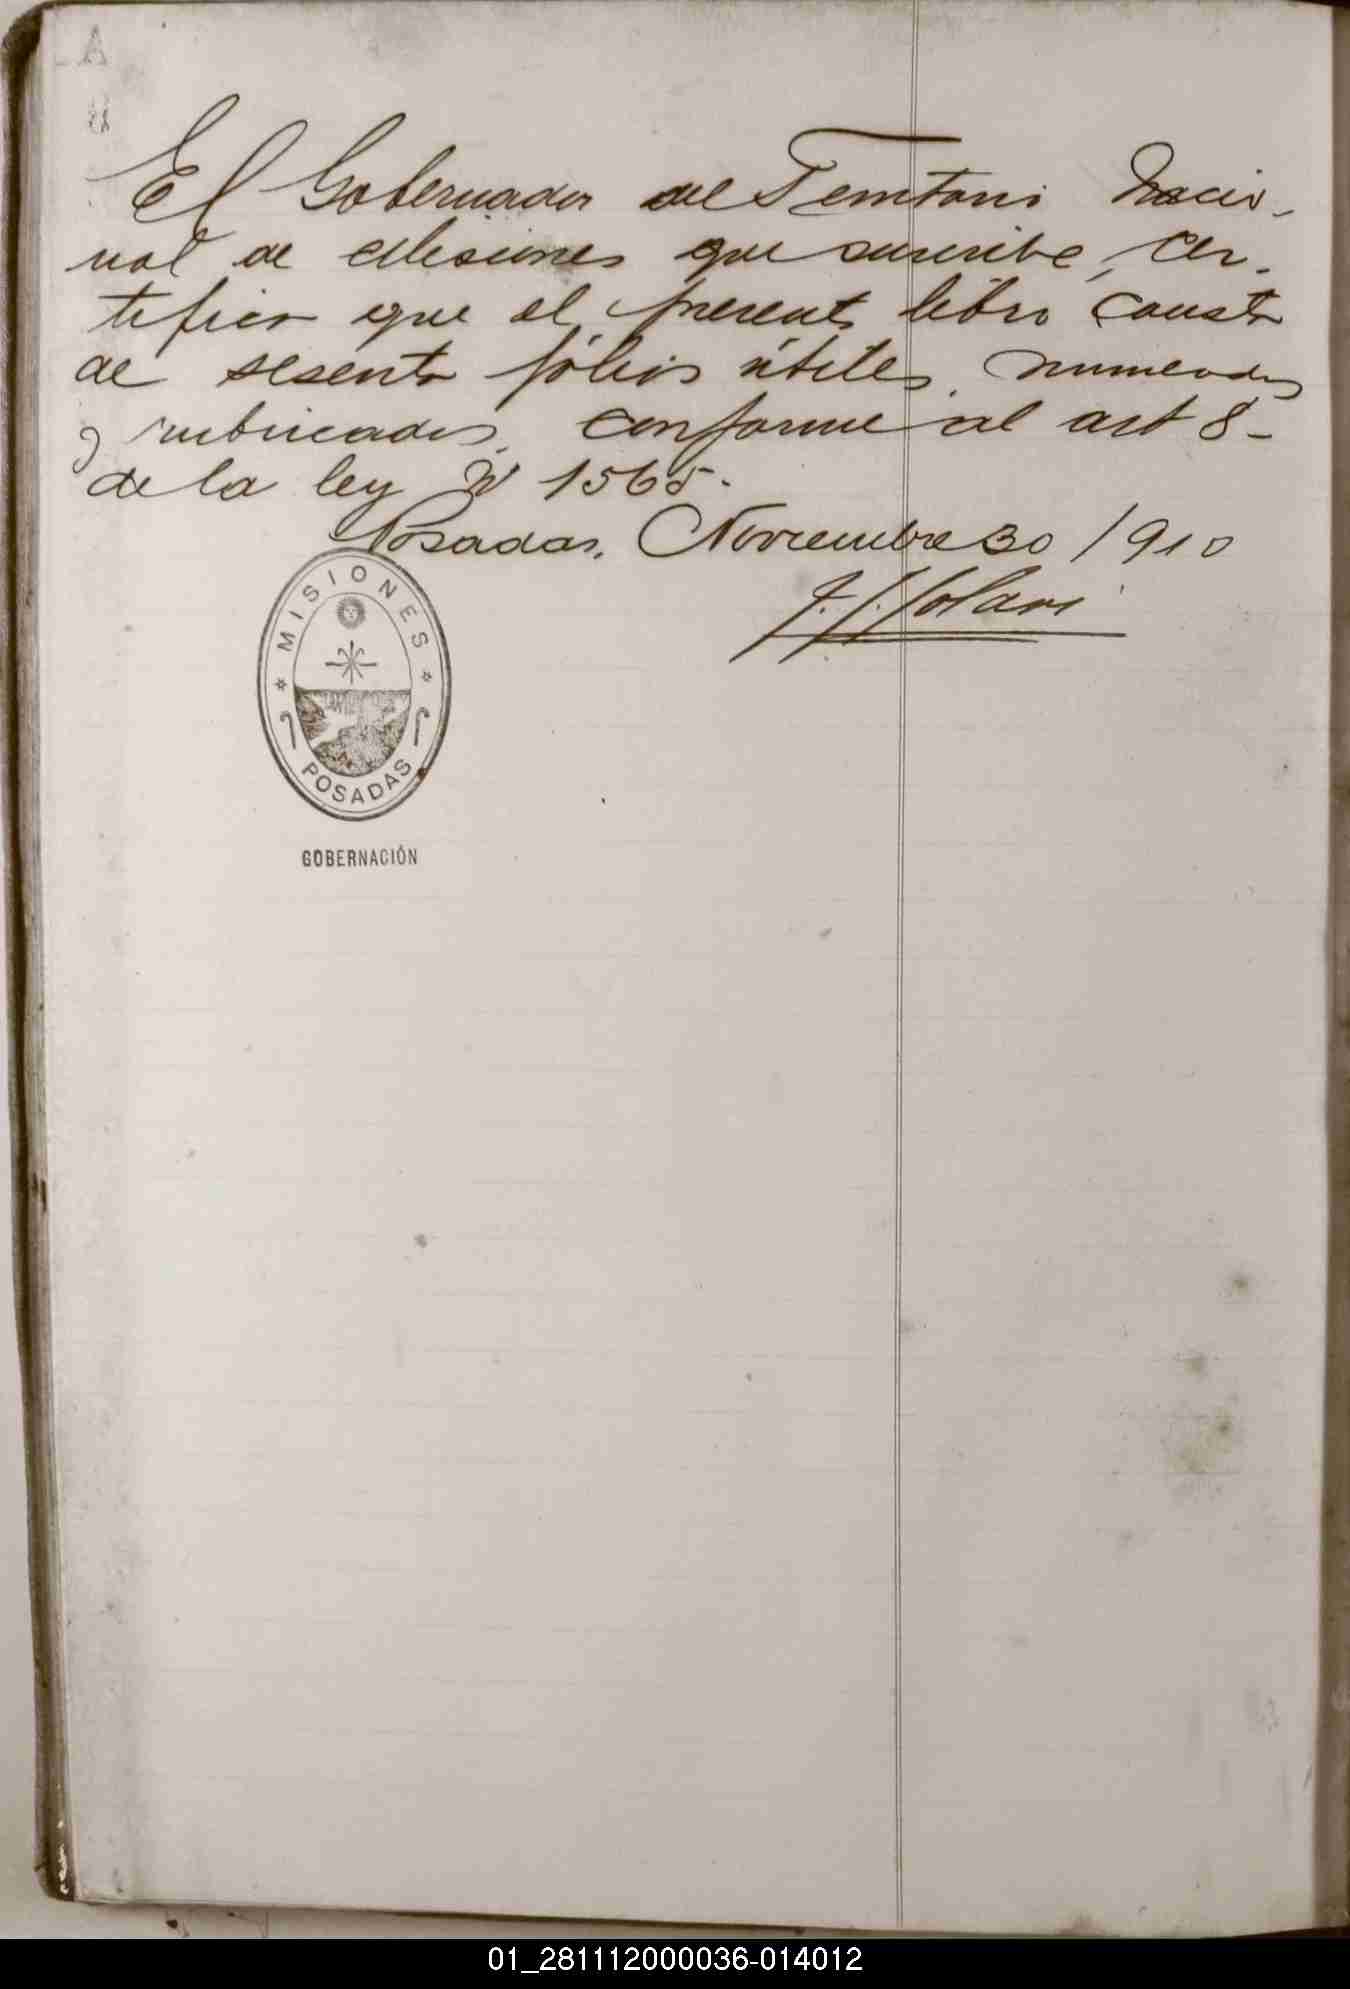 El Gobernador del Territorio Nacio-
nal de Misiones que suscribe, cer-
tifica que el presente libro consta
de sesenta fólios útiles, numerados
y rubricados, conforme al art 8-
de la ley Nº 1565.
Posadas, Noviembre 30/910
J. J. Solari
MISIONES
POSADAS
GOBERNACIÓN
01_281112000036-014012